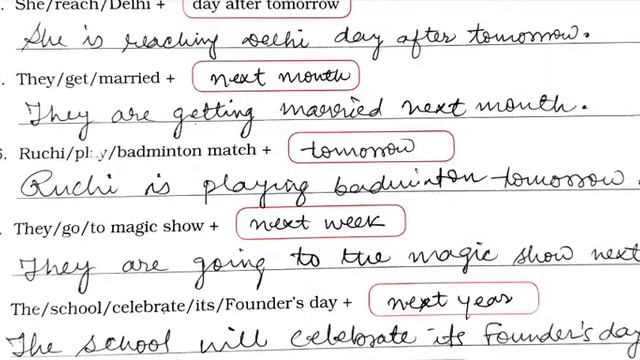 . She/reach/Delhi + day after tomorrow
She is reaching Delhi day after tomorrow.
. They/get/married + next month
They are getting married next month.
6. Ruchi/play/badminton match + tomorrow
Ruchi is playing badminton tomorrow.
. They/go/to magic show + next week
They are going to the magic show next
The/school/celebrate/its/Founder's day + next year
The school will celebrate its Founder's day